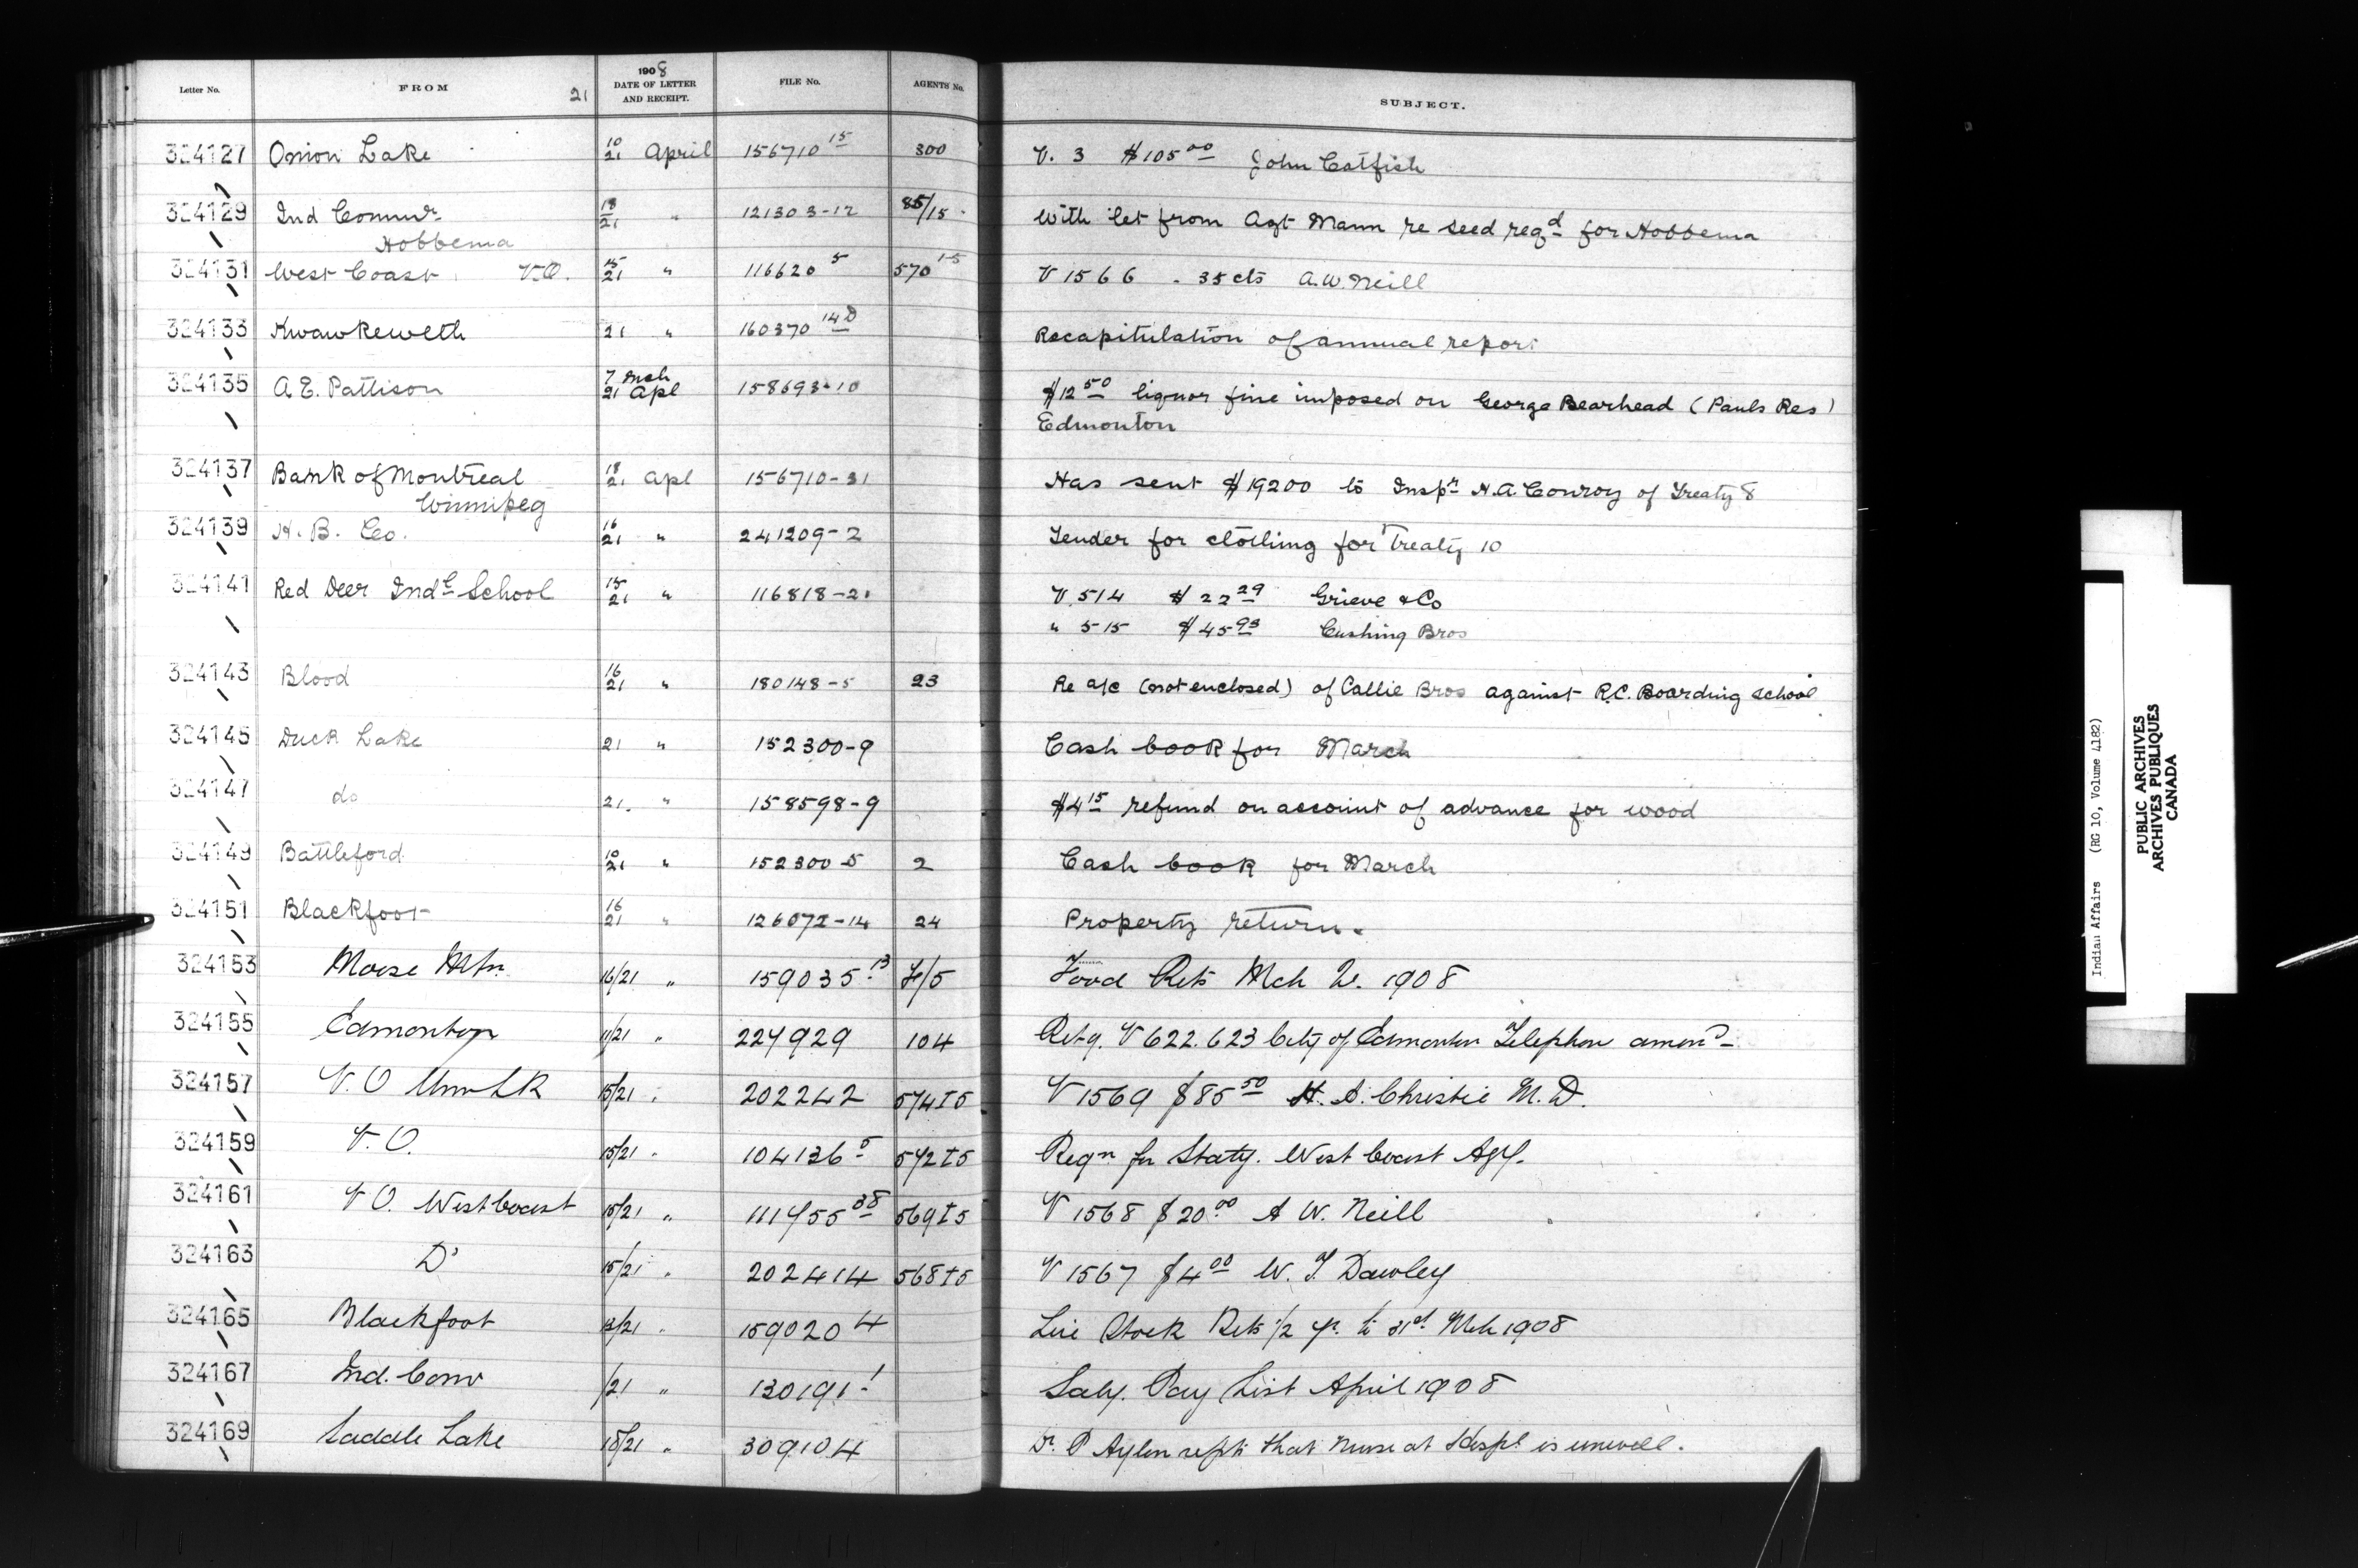 Letter No. FROM 21 1908 DATE OF LETTER AND RECEIPT. FILE No. AGENTS No. SUBJECT.
324127 Onion Lake 10/21 April 156710 15 300 V. 3 $105 00 John Catfish
324129 Ind Commr 18/21 " 121303-12 85/15 With let from Agt Mann re seed reqd for Hobbema
Hobbema
324131 West Coast V.O. 15/21 " 116620 5 570 15 V 1566 . 35 cts A.W. Neill
324133 Kwawkewlth 21 " 160370 14D Recapitulation of annual report
324135 A E. Pattison 7 Mch 21 Apl 158693-10 $12 50 liquor fine imposed on George Bearhead (Pauls Res)
Edmonton
324137 Bank of Montreal 18/21 Apl 156710-31 Has sent $19200 to Inspr H.A Conroy of Treaty 8
Winnipeg
324139 H. B. Co. 16/21 " 241209-2 Tender for clothing for Treaty 10
324141 Red Deer Indl School 15/21 " 116818-21 V. 514 $22 29 Grieve & Co
" 515 $45 93 Cushing Bros
324143 Blood 16/21 " 180148-5 23 Re a/c (not enclosed) of Callie Bros against R.C. Boarding School
324145 Duck Lake 21 " 152300-9 Cash book for March
324147 do 21. " 158598-9 $4 15 refund on account of advance for wood
324149 Battleford 10/21 " 152300-5 2 Cash book for March
324151 Blackfoot 16/21 " 126072-14 24 Property return.
324153 Moose Mtn 16/21 " 159035-13 F/5 Food Rets Mch 1908
324155 Edmonton 11/21 " 224929 104 Retg. V 622. 623 City of Edmonton Telephone amend
324157 V. O 15/21 " 202242 574 I 5 V 1569 $85 50 H. A. Christie M. D.
324159 V. O. 15/21 " 104136 5 572 I 5 Reqn for Staty. West Coast Agy.
324161 V O. West Coast 15/21 " 111455 38 569 I 5 V 1568 $20 00 A W. Neill
324163 Do 15/21 " 202414 568 I 5 V 1567 $4 00 W. T. Dawley
324165 Blackfoot 13/21 " 159020 4 Live Stock Rets 1/2 yr. to 31st Mch 1908
324167 Ind. Comr /21 " 130191-1 Saly. Pay List April 1908
324169 Saddle Lake 15/21 " 309104 Dr. P Aylen repts that Nurse at Hospl is unwell.
Indian Affairs (RG 10, Volume 4182)
PUBLIC ARCHIVES
ARCHIVES PUBLIQUES
CANADA